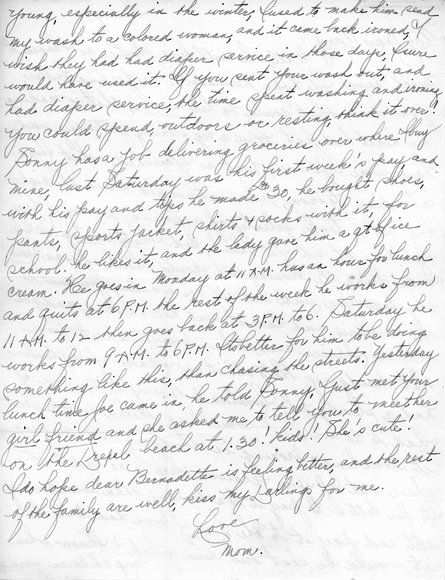 young, especially in the winter, I used to make him send
my wash to a colored woman, and it came back ironed, I
wish they had had diaper service in those days I sure
would have used it. If you sent your wash out, and
had diaper service, the time spent washing and ironing
you could spend, outdoors or resting, think it over!
Sonny has a job delivering groceries over where I buy
mine, last Saturday was his first week's pay, and
with his pay and tips he made $30, he bought shoes,
pants, sports jacket, shirts & socks with it, for
school. He likes it, and the lady gave him a qt of ice
cream. He goes in Monday at 11 A.M. has an hour for lunch
and quits at 6 P.M. the rest of the week he works from
11 A.M. to 12 then goes back at 3 P.M. to 6. Saturday he
works from 9 A.M. to 6 P.M. Its better for him to be doing
something like this, than chasing the streets. Yesterday
lunch time Joe came in, he told Sonny, I just met your
girl friend and she asked me to tell you to meet her
on the beach at 1.30! kids! She's cute!
I do hope dear Bernadette is feeling better, and the rest
of the family are well, kiss my Darlings for me.
Love
Mom.